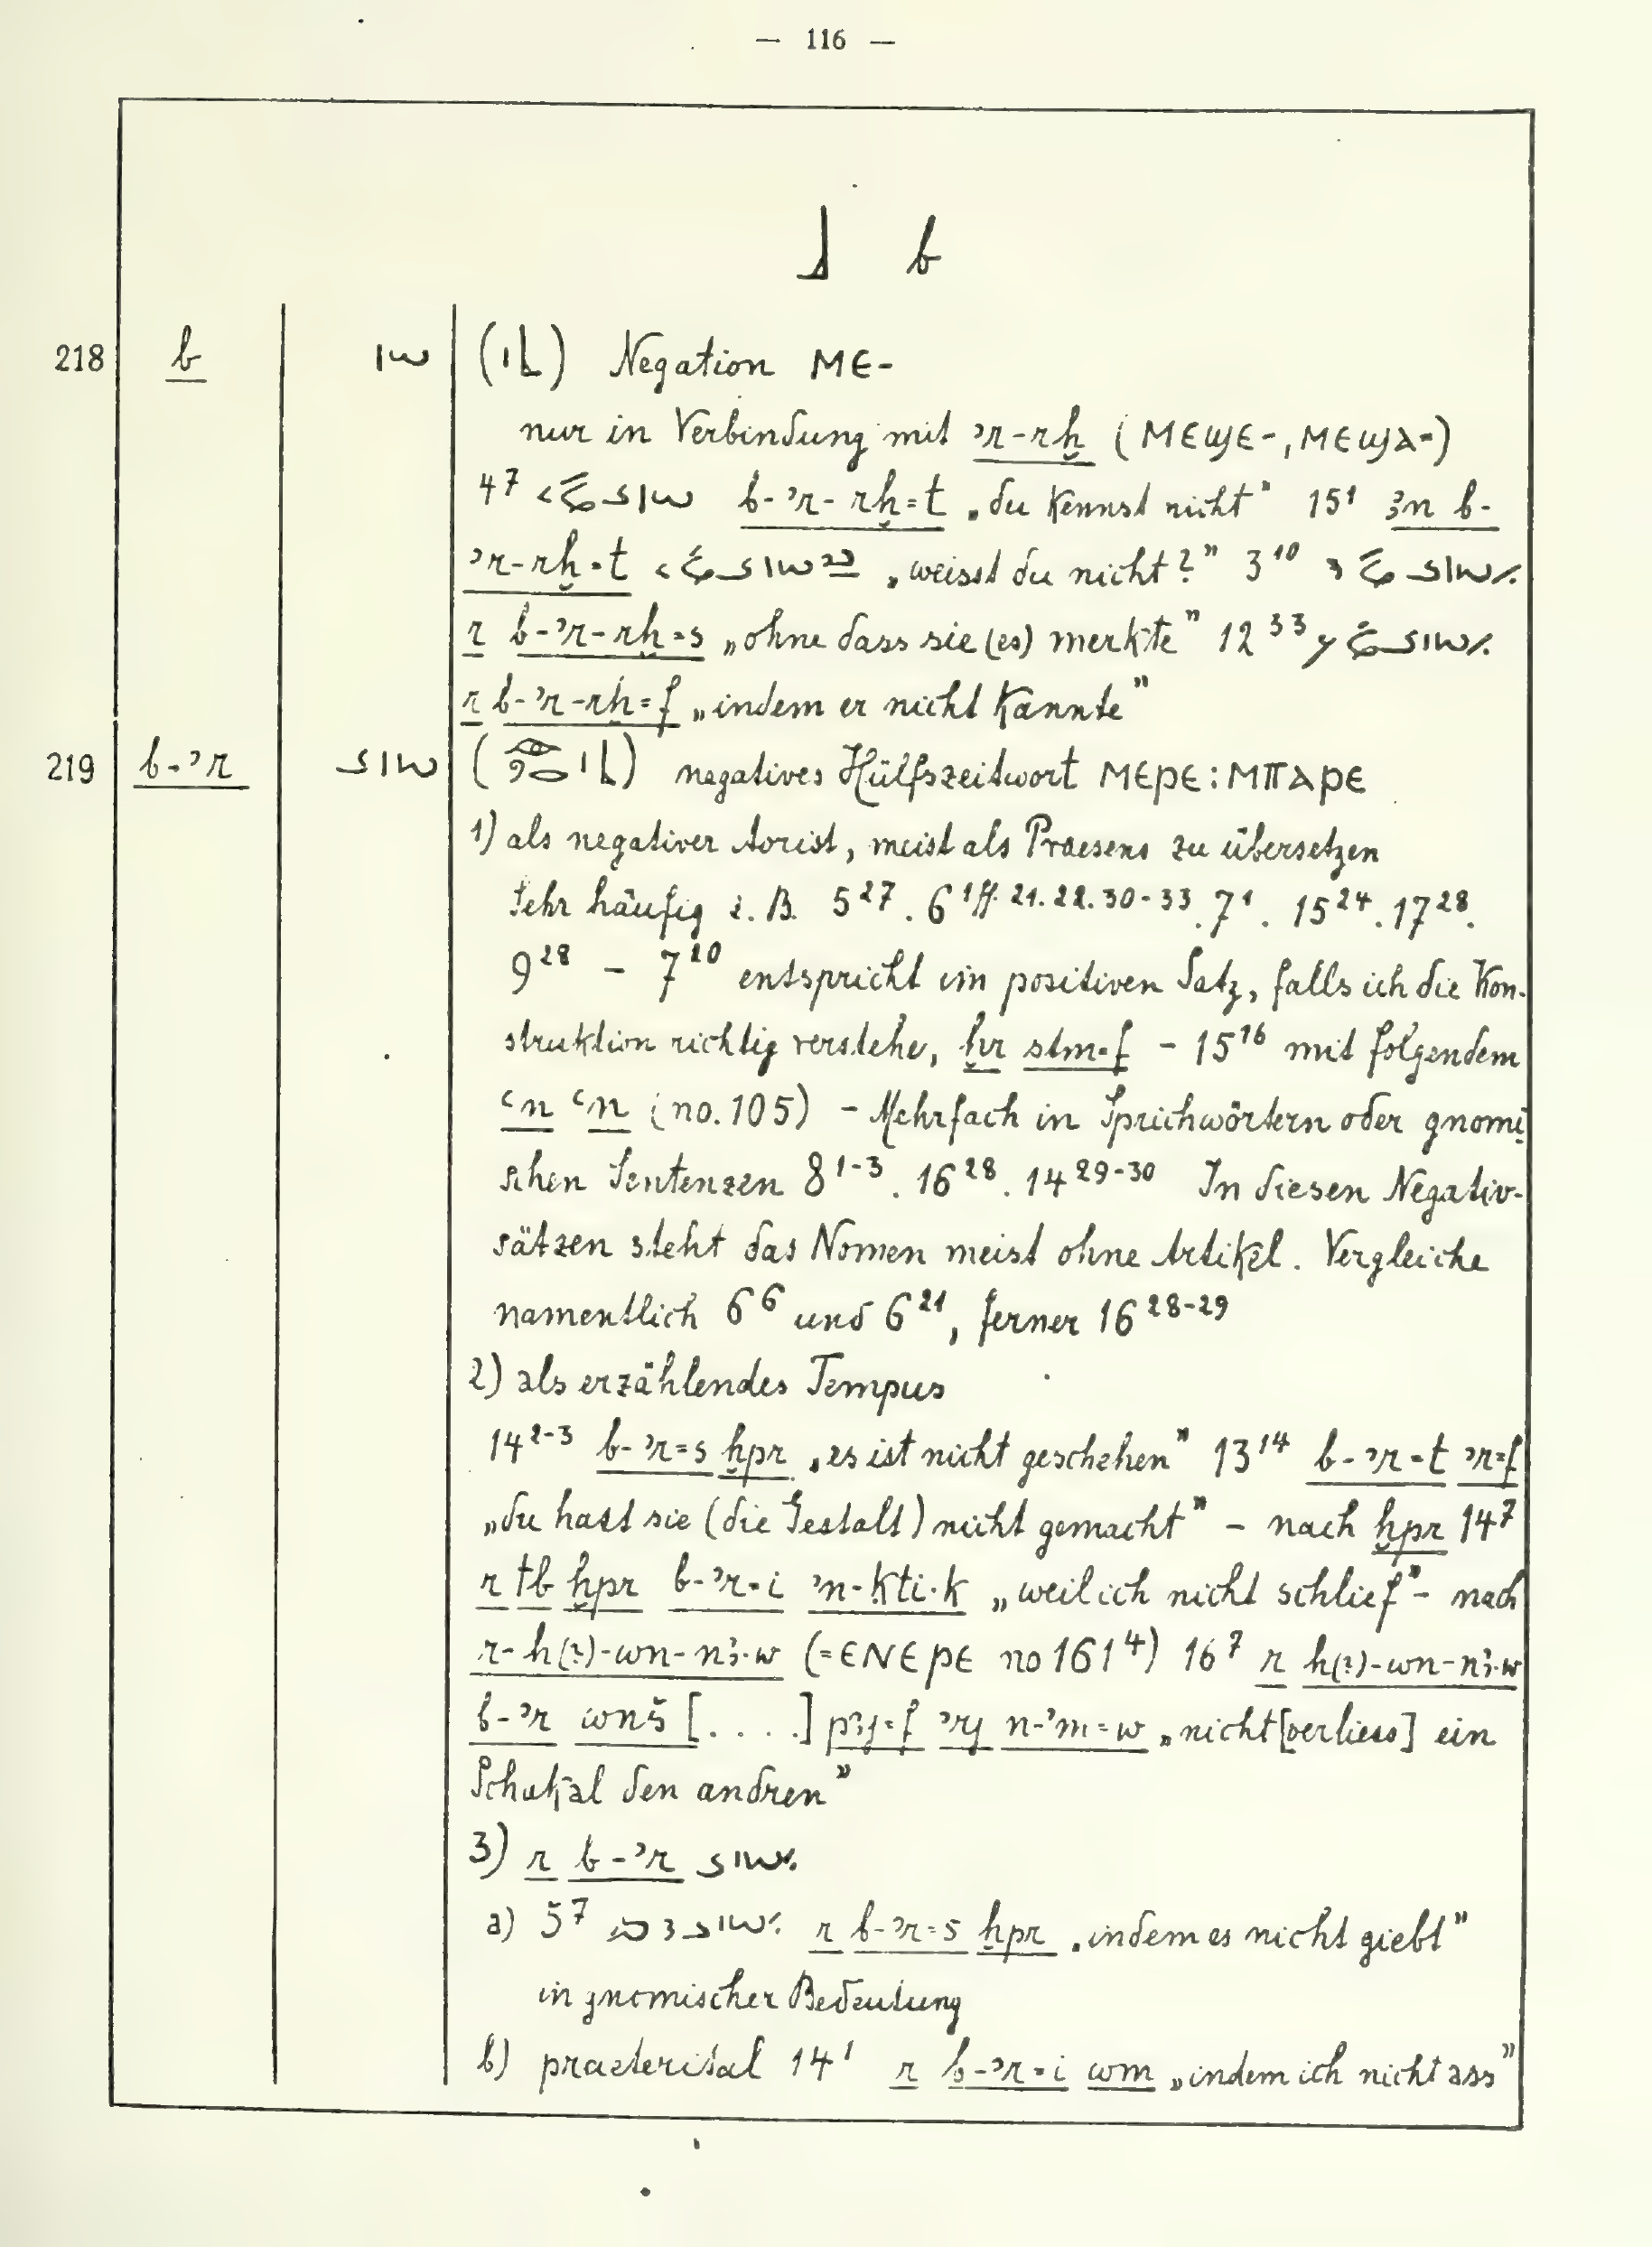 — 116 —
b
218 b Negation ⲘⲈ-
nur in Verbindung mit ꜥr-rḫ (ⲘⲈϢⲈ-, ⲘⲈϢⲀ=)
4⁷ b-ʾr-rḫ=t „du kennst nicht" 15¹ ꜣn b-
ʾr-rḫ=t „weisst du nicht?" 3¹⁰
r b-ʾr-rḫ=s „ohne dass sie (es) merkte" 12³³
r b-ʾr-rḫ=f „indem er nicht kannte"
219 b-ʾr negatives Hülfszeitwort ⲘⲈⲢⲈ : ⲘⲠⲀⲢⲈ
1) als negativer Aorist, meist als Praesens zu übersetzen
Sehr häufig z. B. 5²⁷. 6¹ᶠᶠ·²¹·²²·³⁰⁻³³. 7¹. 15²⁴. 17²⁸.
9²⁸ – 7²⁰ entspricht im positiven Satz, falls ich die Kon-
struktion richtig verstehe, ḫr stm=f – 15¹⁶ mit folgendem
ꜥn ꜥn (no. 105) – Mehrfach in Sprichwörtern oder gnomi
schen Sentenzen 8¹⁻³. 16²⁸. 14²⁹⁻³⁰ In diesen Negativ-
sätzen steht das Nomen meist ohne Artikel. Vergleiche
namentlich 6⁶ und 6²¹, ferner 16²⁸⁻²⁹
2) als erzählendes Tempus
14²⁻³ b-ʾr=s ḫpr „es ist nicht geschehen" 13¹⁴ b-ʾr=t ʾr=f
„du hast sie (die Gestalt) nicht gemacht" – nach ḫpr 14⁷
r tb ḫpr b-ʾr=i ʾn-ḳti·k „weil ich nicht schlief" – nach
r-h(?)-wn-nꜣ·w (= ⲈⲚⲈⲢⲈ no 161⁴) 16⁷ r h(?)-wn-nꜣ·w
b-ʾr wnš [. . . .] pꜣj=f ʾrj n-ʾm=w „nicht [verliess] ein
Schakal den andren"
3) r b-ʾr
a) 5⁷ r b-ʾr=s ḫpr „indem es nicht giebt"
in gnomischer Bedeutung
b) praeterital 14¹ r b-ʾr=i wm „indem ich nicht ass"